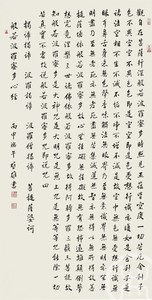 觀自在菩薩行深般若波羅蜜多時照見五蘊皆空度一切苦厄舍利
子色不異空空不異色色即是空空即是色受想行識亦復如是舍利子是
諸法空相不生不滅不垢不淨不增不減是故空中無色無受想行識無
眼耳鼻舌身意無色聲香味觸法無眼界乃至無意識界無無明亦無
無明盡乃至無老死亦無老死盡無苦集滅道無智亦無得以無所得故
菩提薩埵依般若波羅蜜多故心無罣礙無罣礙故無有恐怖遠離顛倒夢
想究竟涅槃三世諸佛依般若波羅蜜多故得阿耨多羅三藐三菩提故知
般若波羅蜜多是大神咒是大明咒是無上咒是無等等咒能除一切
苦真實不虛故說般若波羅蜜多咒即說咒曰
揭諦揭諦 波羅揭諦
波羅僧揭諦 菩提薩婆訶
般若波羅蜜多心經
丙申 書